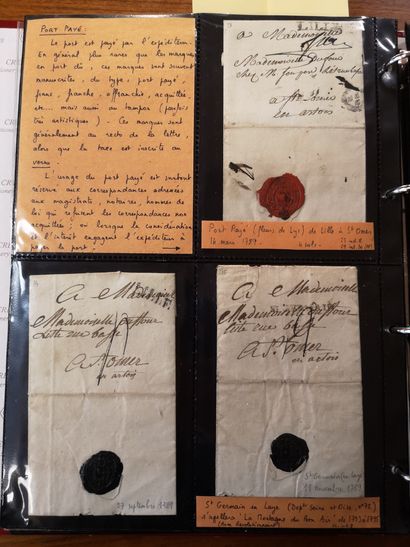 PORT PAYÉ :
Le port est payé par l'expéditeur.
En général plus rares que les marques
en port dû, ces marques sont souvent
manuscrites, du type, port payé,
franc, franche, affranchit, acquittée,
etc... mais aussi au tampon (parfois
très artistiques). Ces marques sont
généralement au recto de la lettre,
alors que la taxe est inscrite au
verso.
L'usage du port payé est surtout
réservé aux correspondances adressées
aux magistrats, notaires, hommes de
loi qui refusent les correspondances non
acquittées ; ou lorsque la considération
et l'intérêt engagent l'expéditeur à
payer le port.
LILLE
à Mademoiselle
Mademoiselle Dufour
chez
à St Omer
en artois
Port Payé (fleurs de Lys) de Lille à St Omer
16 mars 1789.
A Mademoiselle
Mademoiselle Duffour
Litte rue basse
A St Omer
en artois
27 septembre 1789
A Mademoiselle
Mademoiselle Duffour
Litte rue basse
A St Omer
en artois
St Germain en Laye
novembre 1789
St Germain en Laye (Dept Seine et Oise, n°72)
s'appellera "La Montagne du Bon Air" de 1793 à 1795